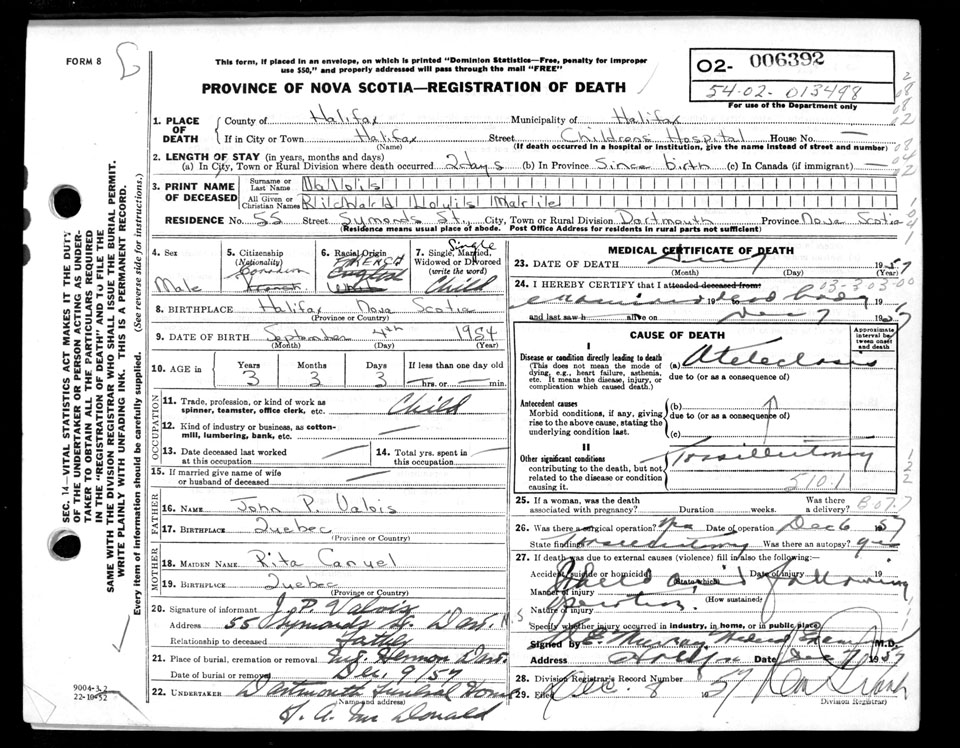 FORM 8
This form, if placed in an envelope, on which is printed "Dominion Statistics—Free, penalty for improper
use $50," and properly addressed will pass through the mail "FREE"
PROVINCE OF NOVA SCOTIA—REGISTRATION OF DEATH
02- 006392
54-02-013498
For use of the Department only
SEC. 14—VITAL STATISTICS ACT MAKES IT THE DUTY
OF THE UNDERTAKER OR PERSON ACTING AS UNDER-
TAKER TO OBTAIN ALL THE PARTICULARS REQUIRED
IN THE "REGISTRATION OF DEATH" AND TO FILE THE
SAME WITH THE DIVISION REGISTRAR WHO SHALL ISSUE THE BURIAL PERMIT.
WRITE PLAINLY WITH UNFADING INK. THIS IS A PERMANENT RECORD.
Every item of information should be carefully supplied. (See reverse side for instructions.)
1. PLACE OF DEATH
County of Halifax Municipality of Halifax
If in City or Town Halifax Street Childrens Hospital House No. —
(Name) (If death occurred in a hospital or institution, give the name instead of street and number)
2. LENGTH OF STAY (in years, months and days)
(a) In City, Town or Rural Division where death occurred 2 days (b) In Province Since birth (c) In Canada (if immigrant)
3. PRINT NAME OF DECEASED
Surname or Last Name Valois
All Given or Christian Names Richard Louis Marie
RESIDENCE No. 55 Street Symonds St., City, Town or Rural Division Dartmouth Province Nova Scotia
(Residence means usual place of abode. Post Office Address for residents in rural parts not sufficient)
4. Sex
Male
5. Citizenship
(Nationality)
Canadian
French
6. Racial Origin
FRENCH
English
White
7. Single, Married,
Widowed or Divorced
(write the word)
Single
Child
8. BIRTHPLACE Halifax Nova Scotia
(Province or Country)
9. DATE OF BIRTH September 4th 1954
(Month) (Day) (Year)
10. AGE in
Years Months Days If less than one day old
3 3 3 — hrs. or — min.
OCCUPATION
11. Trade, profession, or kind of work as
spinner, teamster, office clerk, etc. Child
12. Kind of industry or business, as cotton-
mill, lumbering, bank, etc. —
13. Date deceased last worked
at this occupation
14. Total yrs. spent in
this occupation
15. If married give name of wife
or husband of deceased
FATHER
16. NAME John P. Valois
17. BIRTHPLACE Quebec
(Province or Country)
MOTHER
18. MAIDEN NAME Rita Canuel
19. BIRTHPLACE Quebec
(Province or Country)
20. Signature of informant J. P. Valois
Address 55 Symonds St. Dart. N.S
Relationship to deceased Father
21. Place of burial, cremation or removal Mt. Hermon Dart.
Date of burial or removal Dec. 9/57
22. UNDERTAKER Dartmouth Funeral Home
(Name and address)
9004-3.2
22-10-52
MEDICAL CERTIFICATE OF DEATH
23. DATE OF DEATH 1957
(Month) (Day) (Year)
24. I HEREBY CERTIFY that I attended deceased from: 03-303-00
examined dead body 19
and last saw h alive on Dec 7 1957
CAUSE OF DEATH
Approximate interval between onset and death
I
Disease or condition directly leading to death
(This does not mean the mode of
dying, e.g., heart failure, asthenia,
etc. It means the disease, injury, or
complication which caused death.)
(a)
due to (or as a consequence of)
Antecedent causes
Morbid conditions, if any, giving
rise to the above cause, stating the
underlying condition last.
(b)
due to (or as a consequence of)
(c)
II
Other significant conditions
contributing to the death, but not
related to the disease or condition
causing it.
Tonsillectomy
510.1
25. If a woman, was the death
associated with pregnancy? Duration weeks.
Was there
a delivery?
26. Was there a surgical operation? yes Date of operation Dec 6 1957
State findings Tonsillectomy Was there an autopsy? yes
27. If death was due to external causes (violence) fill in also the following:
Accident, suicide or homicide? (State which) Date of injury 19
Manner of injury (How sustained)
Nature of injury
following
operation
Specify whether injury occurred in industry, in home, or in public place
Signed by Murray Medical Examiner M.D.
Address Date Dec 7 1957
28. Division Registrar's Record Number
29. Filed Dec. 8 1957
Division Registrar)